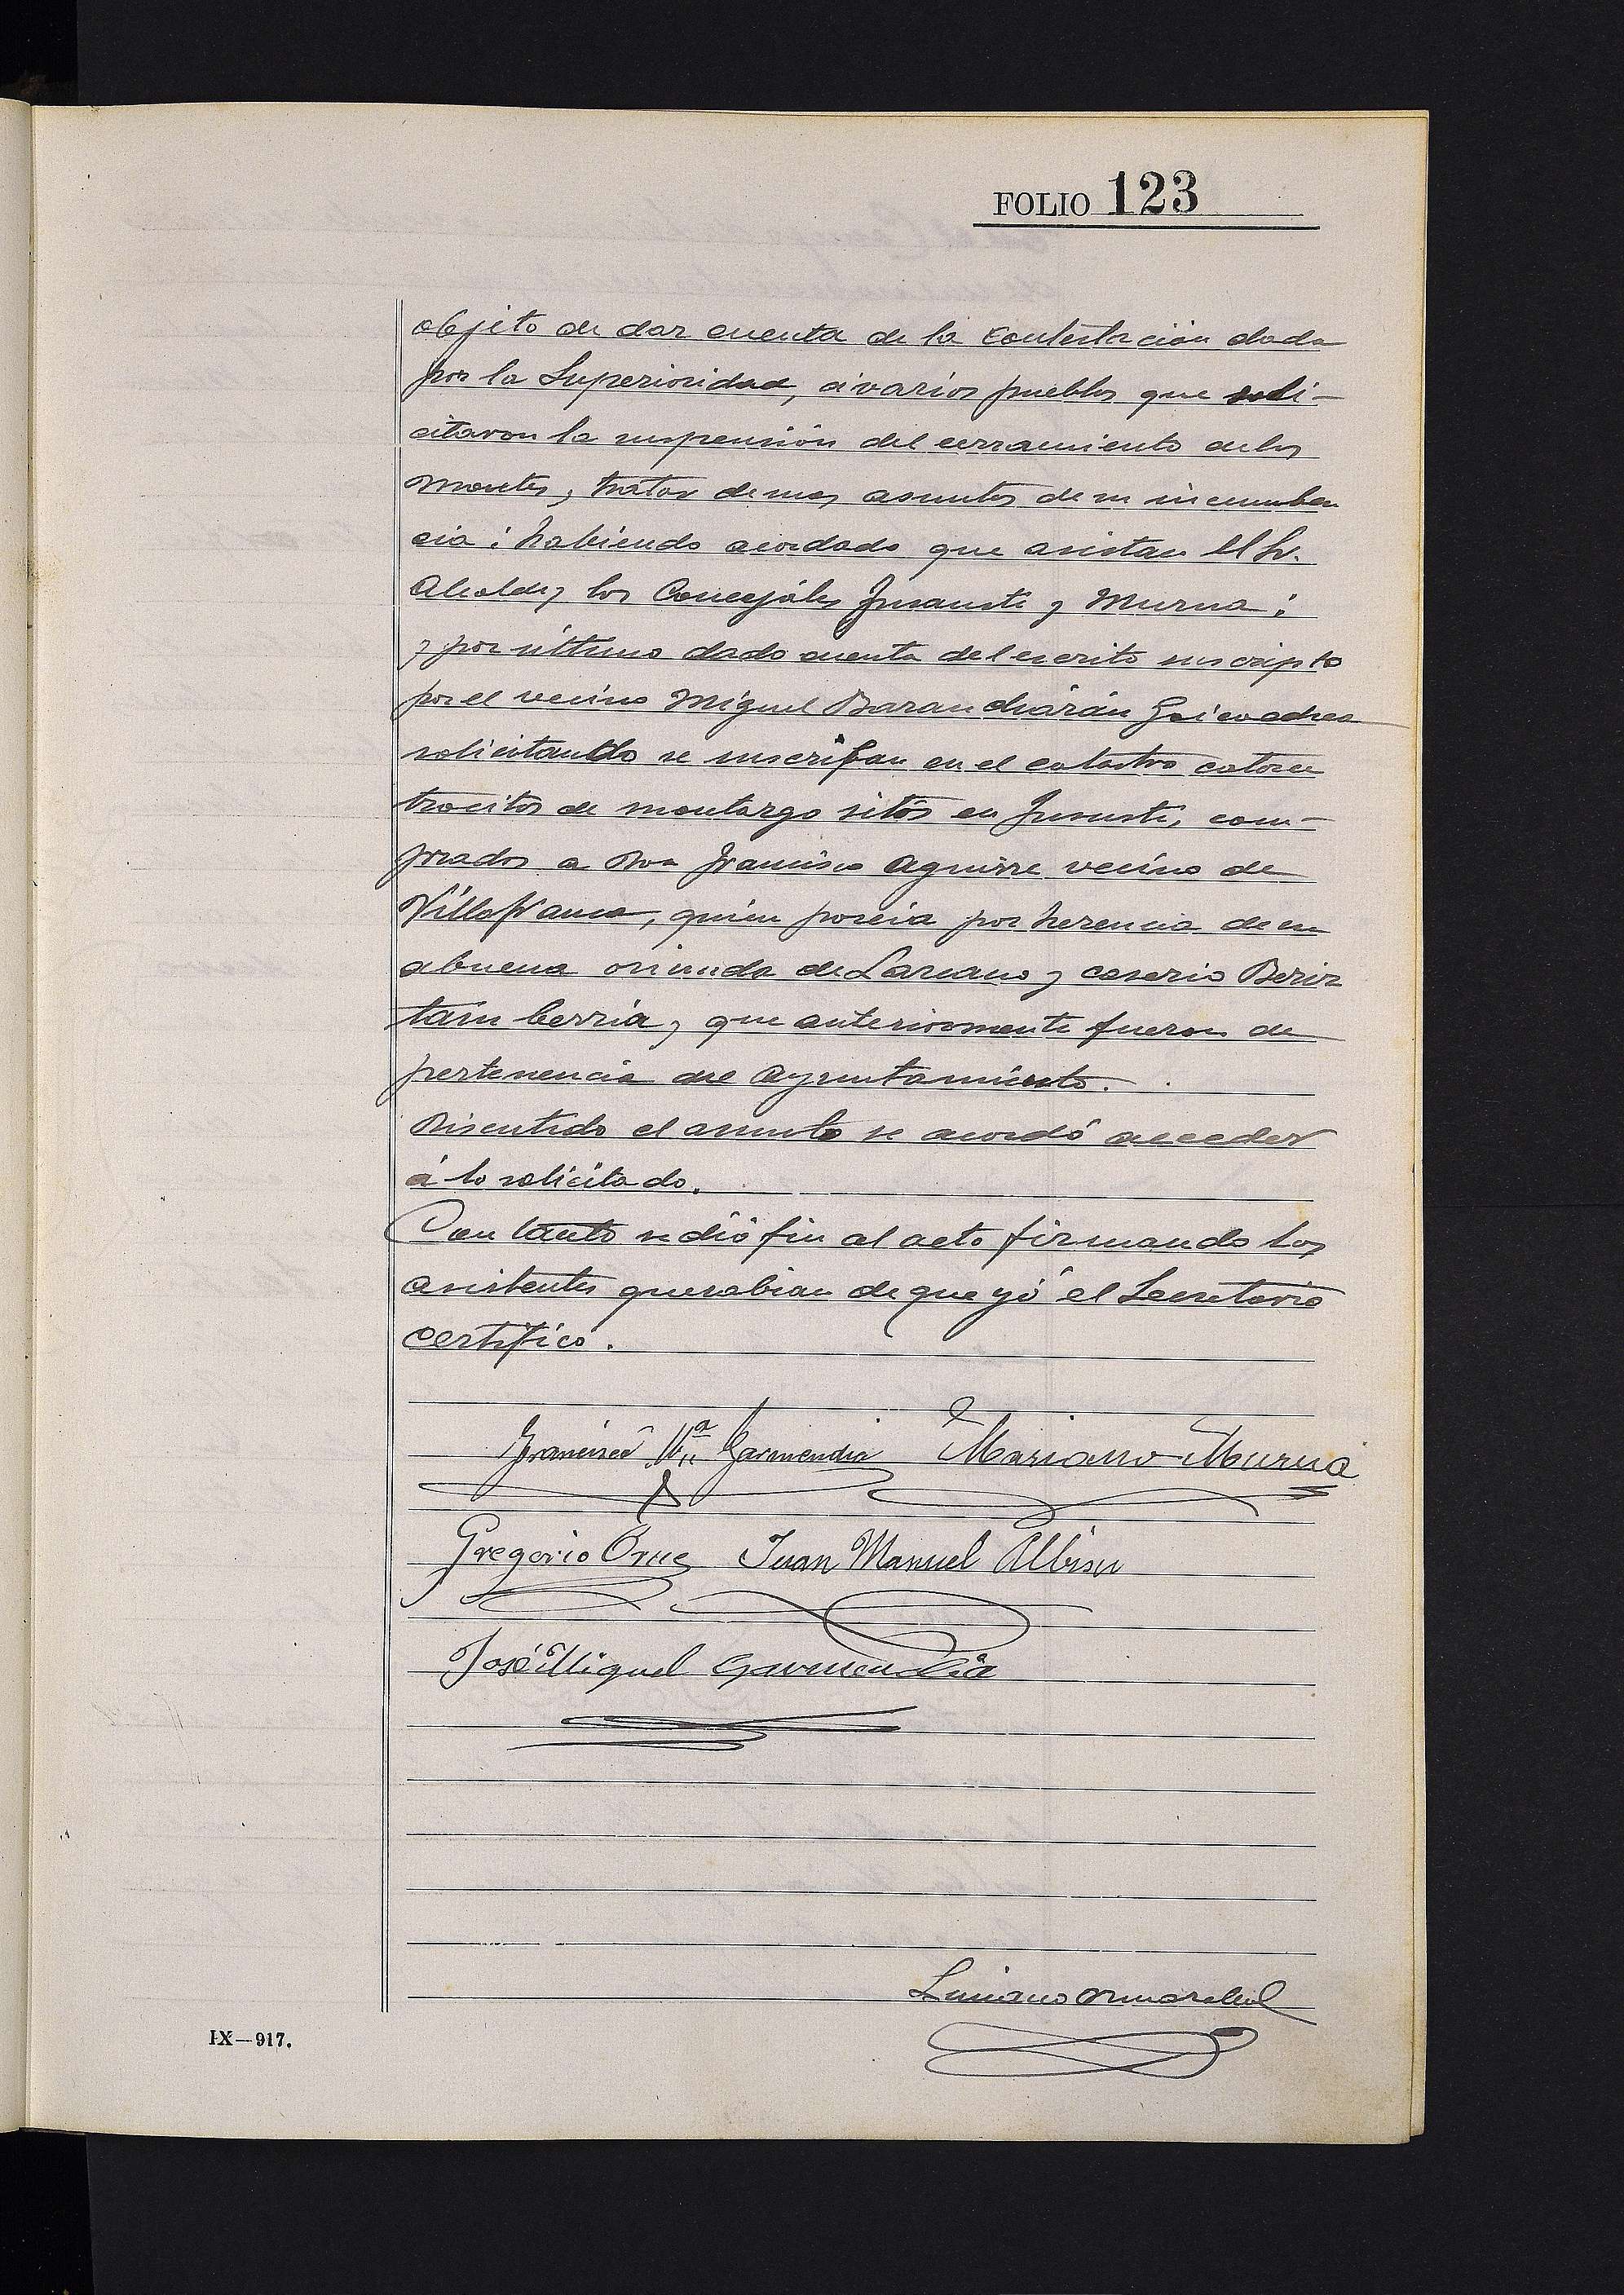 FOLIO 123
objeto de dar cuenta de la contestacion dada
por la Superioridad, á varios pueblos que soli-
citaron la suspensión del cerramiento de los
montes, tratar demas asuntos de su incumben
cia; habiendo acordado que asistan El Sr.
Alcalde y los Concejáles y Murua;
y por último dado cuenta del escrito suscripto
por el vecino Miguel Barandiárán
solicitando se inscriban en el catastro catorce
trocitos de montazgo sitos en com-
prados a Don Francisco Aguirre vecino de
Villafranca, quien poseia por herencia de su
abuena oriunda de Lazcano y caserio Beriz
tain berria, que anteriormente fueron de
pertenencia del Ayuntamiento.
Discutido el asunto se acordó acceder
á lo solicitado.
Con tanto se dió fin al acto firmando los
asistentes que sabian de que yó el Secretario
certifico.
Francisco Mª Garmendia Mariano Murua
Gregorio Orue Juan Manuel Albisu
José Miguel Garmendia
Luciano
IX—917.